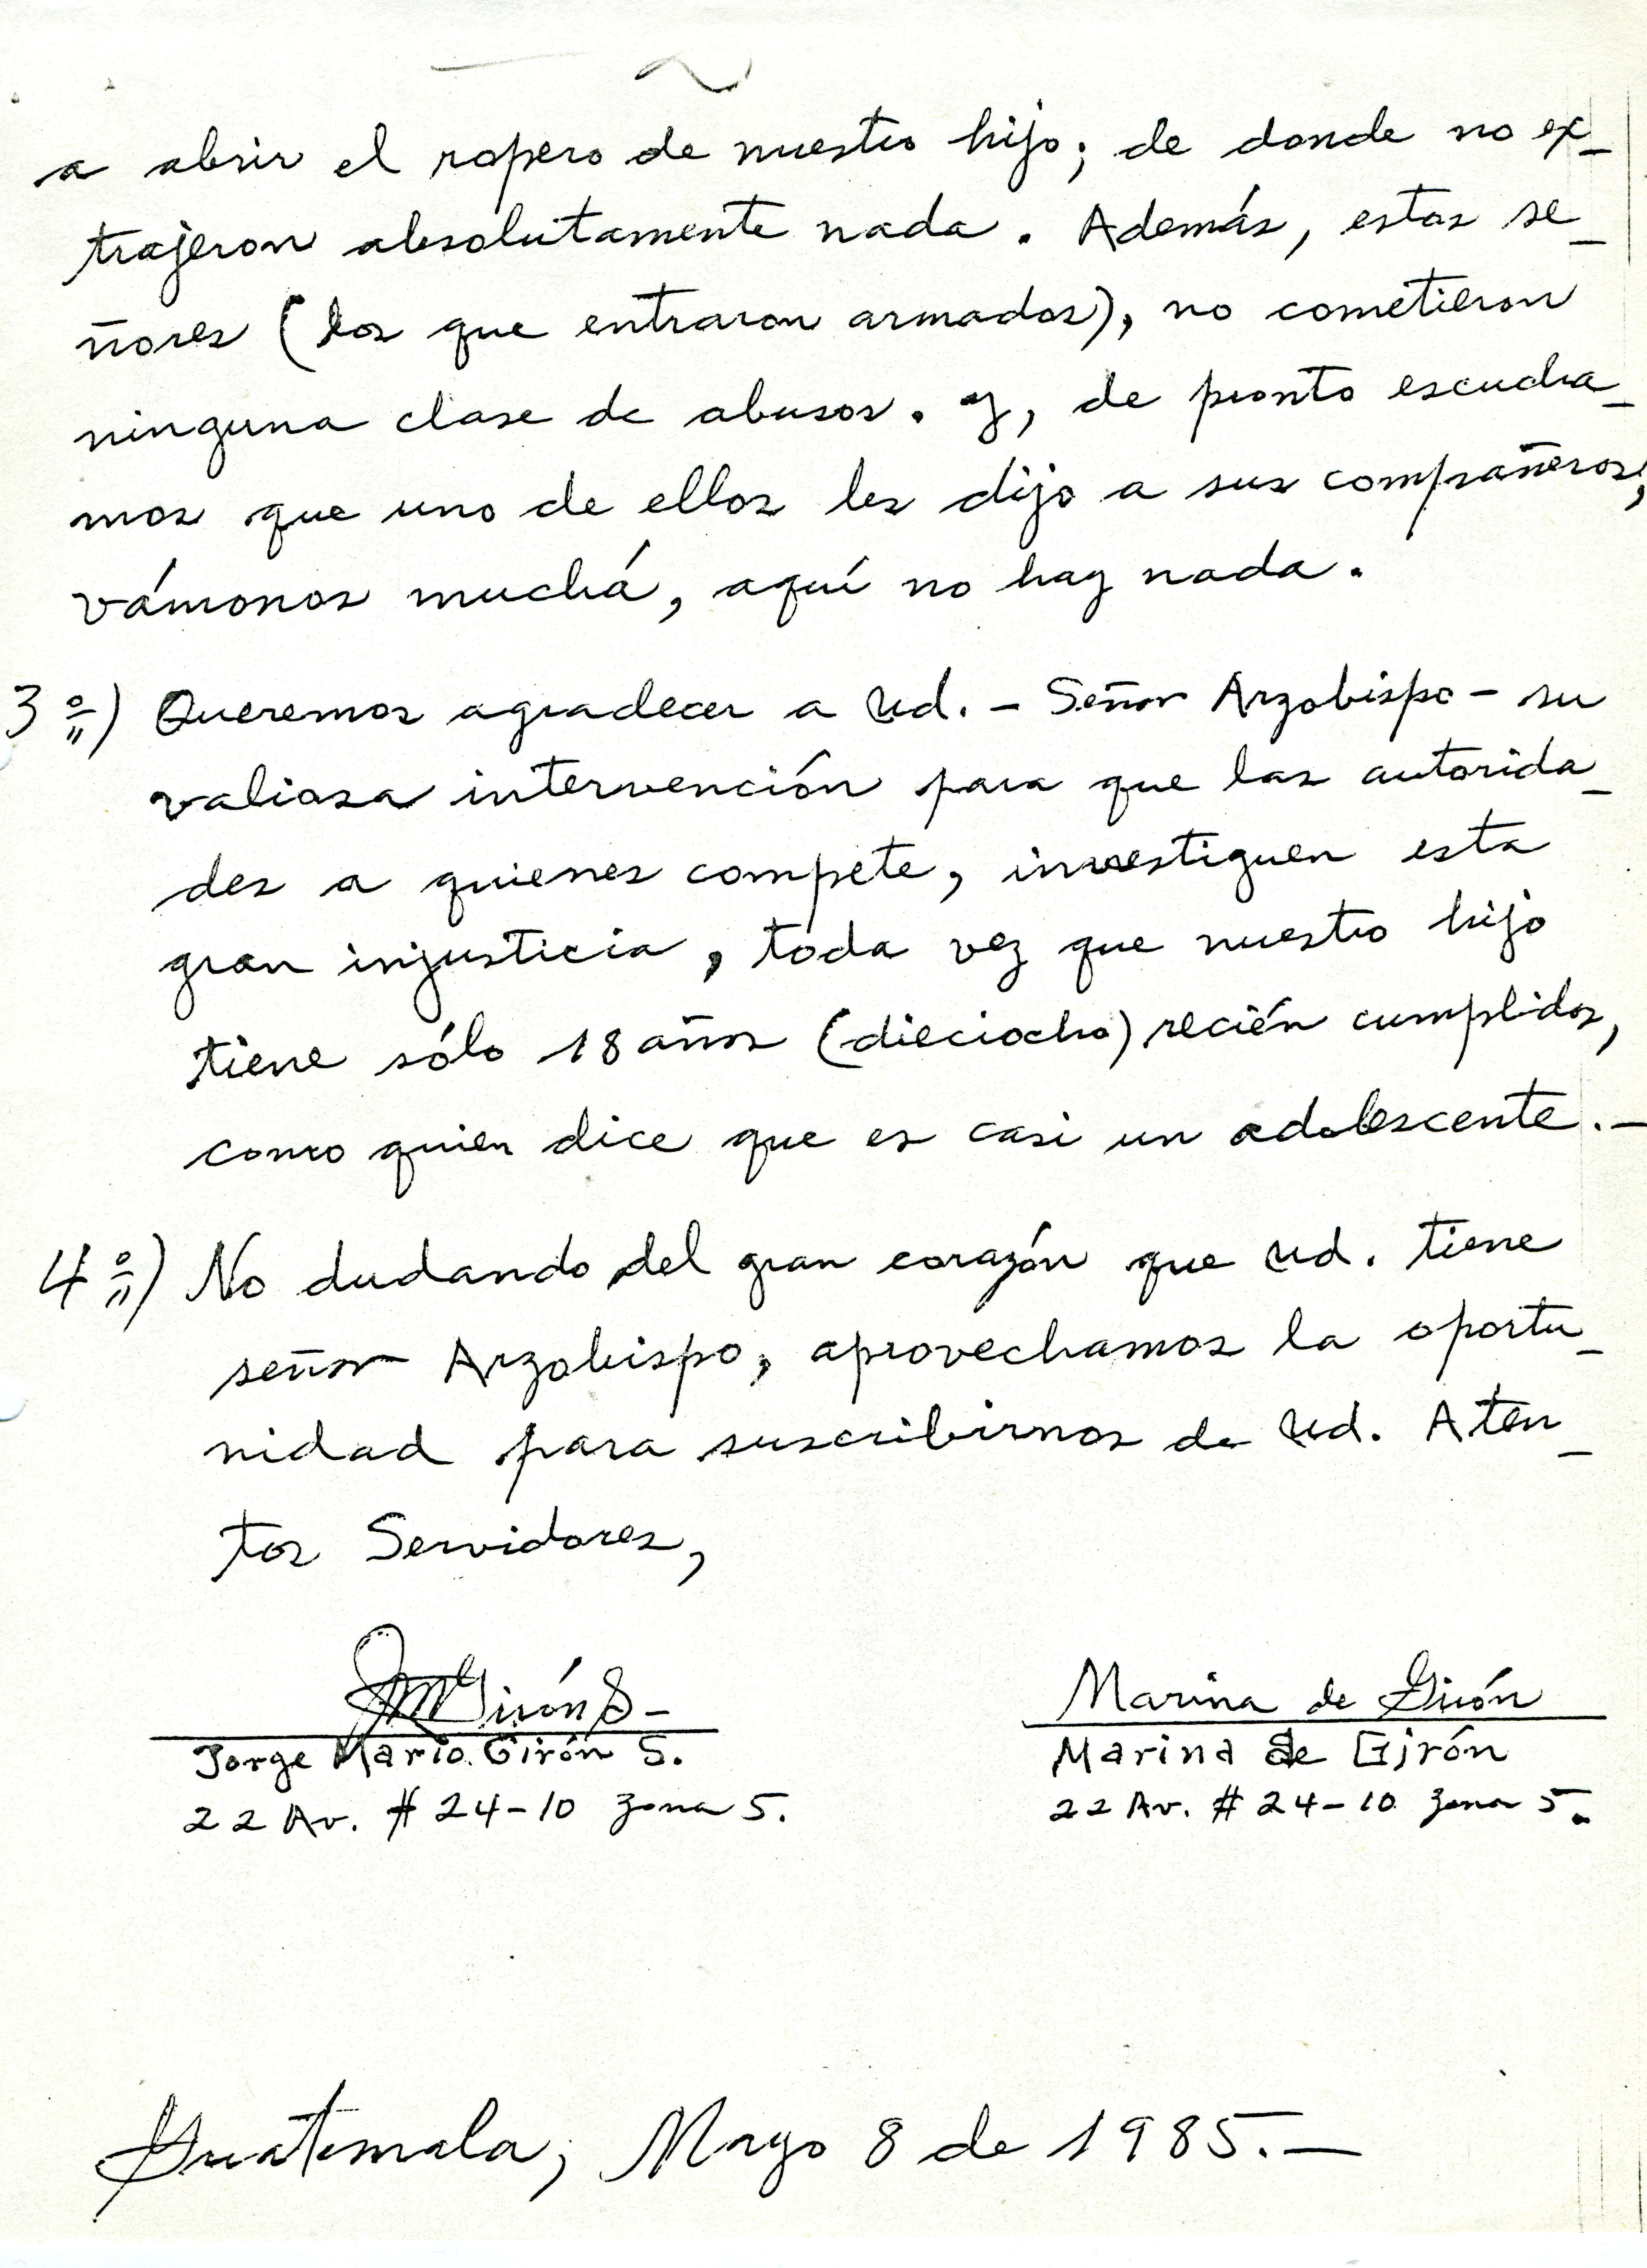 a abrir el ropero de nuestro hijo; de donde no ex_
trajeron absolutamente nada. Además, estos se_
ñores (los que entraron armados), no cometieron
ninguna clase de abusos. Y, de pronto escucha_
mos que uno de ellos les dijo a sus compañeros,
vámonos muchá, aquí no hay nada.
3º) Queremos agradecer a Ud. - Señor Arzobispo - su
valiosa intervención para que las autorida_
des a quienes compete, investiguen esta
gran injusticia, toda vez que nuestro hijo
tiene sólo 18 años (dieciocho) recién cumplidos,
como quien dice que es casi un adolescente.-
4º) No dudando del gran corazón que Ud. tiene
señor Arzobispo, aprovechamos la oportu_
nidad para suscribirnos de Ud. Aten_
tos Servidores,
JMGirón S- Marina de Girón
Jorge Mario Girón S. Marina de Girón
22 Av. # 24-10 Zona 5. 22 Av. # 24-10 Zona 5.
Guatemala, Mayo 8 de 1985.-